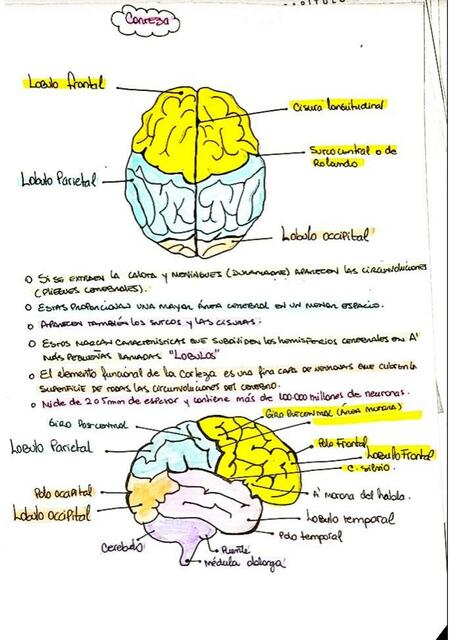 Corteza
Lobulo frontal
Cisura longitudinal
Surco central o de
Rolando
Lobulo Parietal
Lobulo occipital
o Si se extraen la calota y meninges (duramadre) aparecen las circunvoluciones
(pliegues cerebrales).
o Estas proporcionan una mayor área cerebral en un menor espacio.
o Aparecen también los surcos y las cisuras.
o Estos marcan características que subdividen los hemisferios cerebrales en A'
más pequeñas llamadas "LOBULOS"
o El elemento funcional de la corteza es una fina capa de neuronas que cubren la
superficie de todas las circunvoluciones del cerebro.
o Mide de 2 o 5mm de espesor y contiene más de 100.000 millones de neuronas.
Giro Postcentral
Giro Precentral (Área motora)
Lobulo Parietal
Polo Frontal
Lobulo Frontal
C. silvio.
Polo occipital
Lobulo occipital
A' Motora del habla.
Lobulo temporal
Polo temporal
Cerebelo
Puente
Médula oblonga